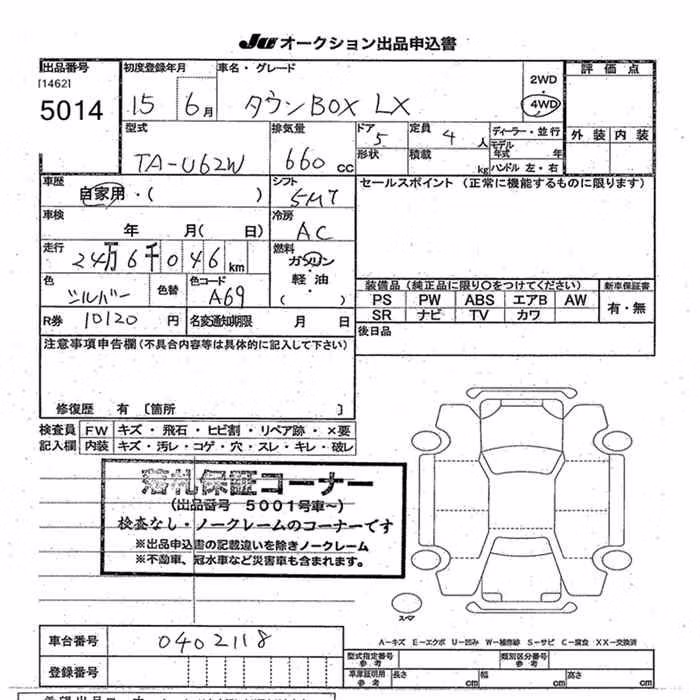 JU オークション出品申込書
出品番号 初度登録年月 車名・グレード 2WD 評価点
[1462]
5014 15 6月 タウンBOX LX 4WD
型式 排気量 ドア 定員 ディーラー・並行 外装 内装
5 4人 モデル年式 年
TA-U62W 660cc 形状 積載 kg ハンドル 左・右
車歴 シフト セールスポイント (正常に機能するものに限ります)
自家用・( ) 5MT
車検 冷房
年 月( 日) AC
走行 燃料
24万6千046km ガソリン
軽油
( )
色 色替 色コード 装備品(純正品に限り○をつけてください) 新車保証書
シルバー A69 PS PW ABS エアB AW 有・無
R券 10120円 名変通知期限 月 日 SR ナビ TV カワ
後日品
注意事項申告欄(不具合内容等は具体的に記入して下さい)
修復歴 有 〔箇所 〕
検査員 FW キズ・飛石・ヒビ割・リペア跡・×要
記入欄 内装 キズ・汚レ・コゲ・穴・スレ・キレ・破レ
落札保証コーナー
(出品番号 5001号車~)
検査なし・ノークレームのコーナーです
※出品申込書の記載違いを除きノークレーム
※不動車、冠水車など災害車も含まれます。
スペア
A-キズ E-エクボ U-凹み W-補修跡 S-サビ C-腐食 XX-交換済
車台番号 0402118
型式指定番号 参考 類別区分番号 参考
登録番号 車庫証明用 参考 長さ cm 幅 cm 高さ cm
希望出品コーナー